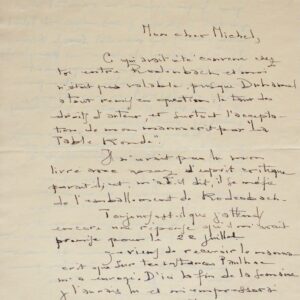 Mon cher Michel,
Ce qui avait été convenu chez
toi entre Rodenbach et moi
n'était pas valable, puisque Duhamel
a tout remis en question, le taux des
droits d'auteur, et surtout l'accepta-
tion de mon manuscrit par La
Table Ronde.
Il n'avait pas lu mon
livre avec assez d'esprit critique
paraît-il, et, m'a-t-il dit, il se méfie
de l'emballement de Rodenbach.
Toujours est-il que j'attends
encore une réponse que l'on m'avait
promise pour le 22 juillet.
Je viens de recevoir le manus-
crit que sur les instances Paulhan
m'a envoyé. D'ici la fin de la semaine
j'aurais lu et m'empresserai